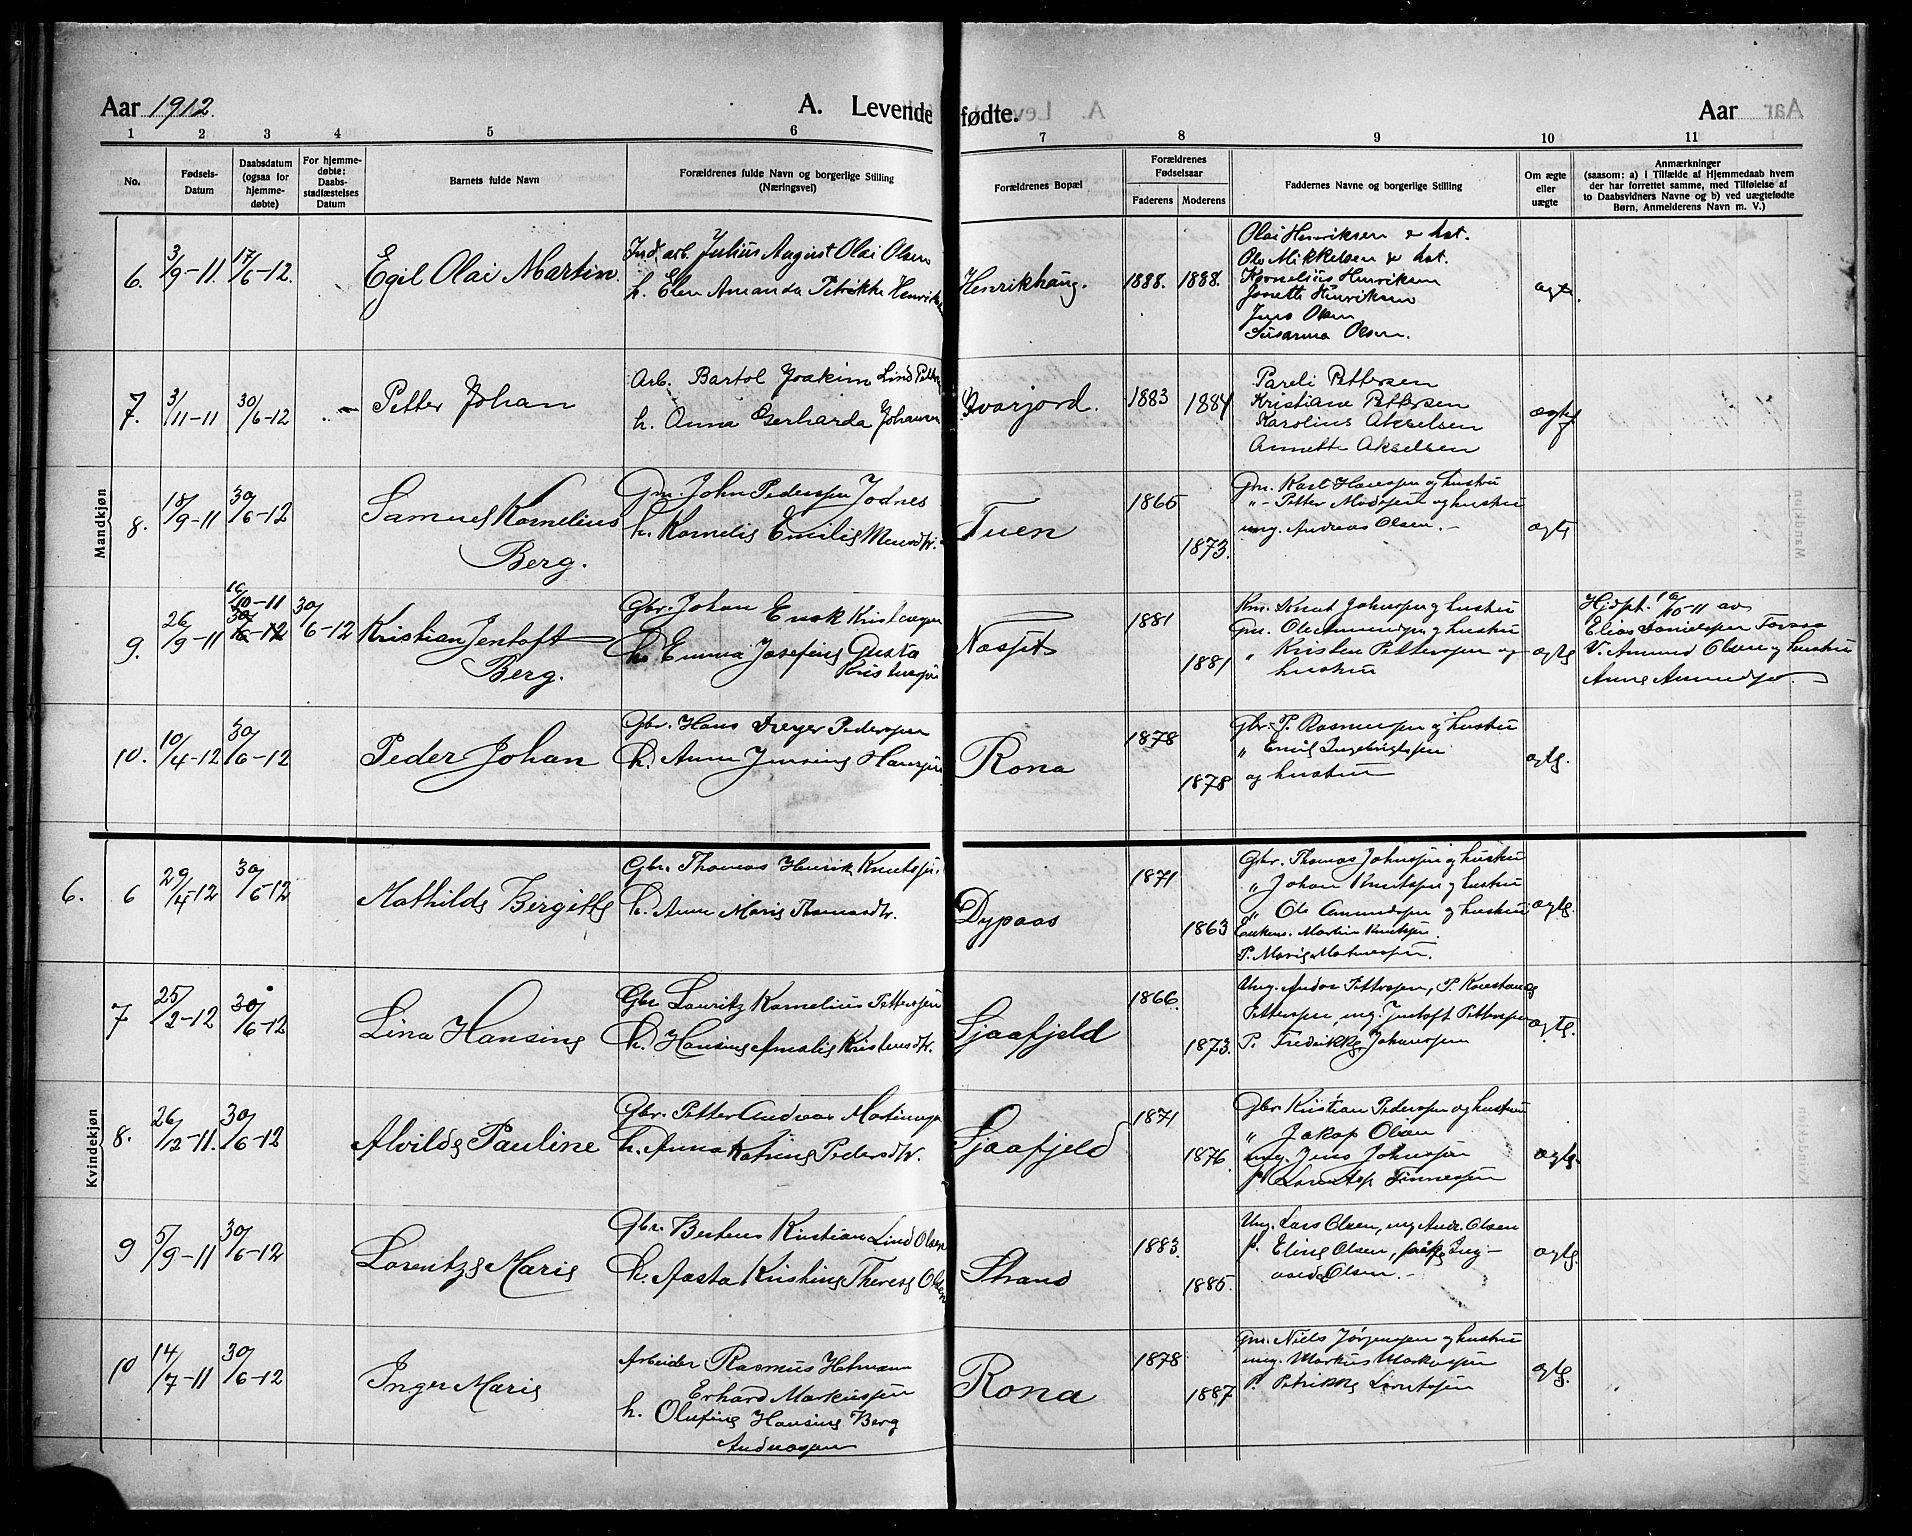 Aar 1912.
A. Levende fødte.
Aar
1 2 3 4 5 6 7 8 9 10 11
No.
Fødsels-
Datum
Daabsdatum
(ogsaa for
hjemme-
døbte)
For hjemme-
døbte:
Daabs-
stadfæstelses
Datum
Barnets fulde Navn
Forældrenes fulde Navn og borgerlige Stilling
(Næringsvei)
Forældrenes Bopæl
Forældrenes
Fødselsaar
Faderens Moderens
Faddernes Navne og borgerlige Stilling
Om ægte
eller
uægte
Anmærkninger
(saasom: a) i Tilfælde af Hjemmedaab hvem
der har forrettet samme, med Tilføielse af
to Daabsvidners Navne og b) ved uægtefødte
Børn, Anmelderens Navn m. V.)
Mandkjøn
6. 3/9-11. 17/6-12. Egil Olai Martin.
Ind. arb. Julius August Olai Olsen
h. Elen Amanda Petrikke
Henrikhaug. 1888. 1888.
Olai Henriksen
Ole Mikkelsen
Kornelius Henriksen
Jonette Henriksen
Jens Olsen
Susanna Olsen.
ægte
7. 3/11-11 30/6-12 Petter Johan
Arb. Bartol Joakim Lind
h. Anna Gerharda Johansen
Kvarjord. 1883 1884
Pareli Pettersen
Kristiane Pettersen
Karolius Akselsen
Annette Akselsen
ægte
8. 18/9-11 30/6-12 Samuel Kornelius
Berg.
Gm. John Pederssen Jodnes
h. Kornelie Emilie
Tuen 1865 1873.
Gm. Karl Hanssen og hustru
"- Petter og hustru
ung. Andreas Olsen. -
ægte
9. 26/9-11 16/10-11 30/6-12 30/6-12 Kristian Jentoft
Berg.
Gbr. Johan Enok Kristensen
h. Emma Josefine Gusta
Kristensen
1881 1881
Knut Johnssen og hustru
Gm. Ole Amundssen og hustru
" Kristen Petterssen og
hustru
ægte
Hjdpt. 16/10-11 av
Elias Danielssen
V. Amund Olsen og hustru
Anne Amundssen
10. 10/4-12 30/6-12 Peder Johan
Gbr. Hans Dreyer Pederssen
h. Anne Jensine Hanssen
Rona 1878 1878
Gbr. P. Rasmussen og hustru
" Emil Ingebrigtssen
og hustru
ægte.
Kvindekjøn
6. 6 29/4-12 30/6-12 Mathilde Bergitte
Gbr. Thomas Henrik Knutssen
h. Anne Marie Thomasdtr.
Dypaas 1871 1863
Gbr. Thomas Johnssen og hustru
" Johan Knutssen og hustru
" Ole Amundssen og hustru
Martin Knutssen.
P. Marie
ægte.
7 25/2-12 30/6-12 Lina Hansine
Gbr. Lauritz Kornelius Petterssen
h. Hansine Amalie Kristensdtr.
Sjaafjeld 1866 1873.
Ung. Andor Petterssen, P. Konstanse
Petterssen, ung. Jentoft Petterssen
P. Fredrikke Johanssen
ægte.
8. 26/12-11. 30/6-12 Alvilde Pauline
Gbr. Petter Andreas
h. Anna Katrine Pedersdtr.
Sjaafjeld 1871 1876.
Gbr. Kristian Pederssen og hustru
" Jakop Olsen
ung. Jens Johnssen
ægte.
9 5/9-11 30/6-12 Lorentze Marie
Gbr. Kristian Lind Olsen
h. Aasta Kristine Therese Olsen
Strand 1883. 1885.
Ung. Lars Olsen, ung Andr. Olsen
p. Eline Olsen, Ing-
Olsen. -
ægte.
10 14/7-11 30/6-12 Inger Marie
Arbeider Rasmus Hofmann
Erhard Markussen
h. Olufine Hansine Berg
Andreassen
Rona 1878 1887
Gm. Niels Jørgenssen og hustru
ung. Markus Markussen
P. Petrikke Lorntssen
ægte.